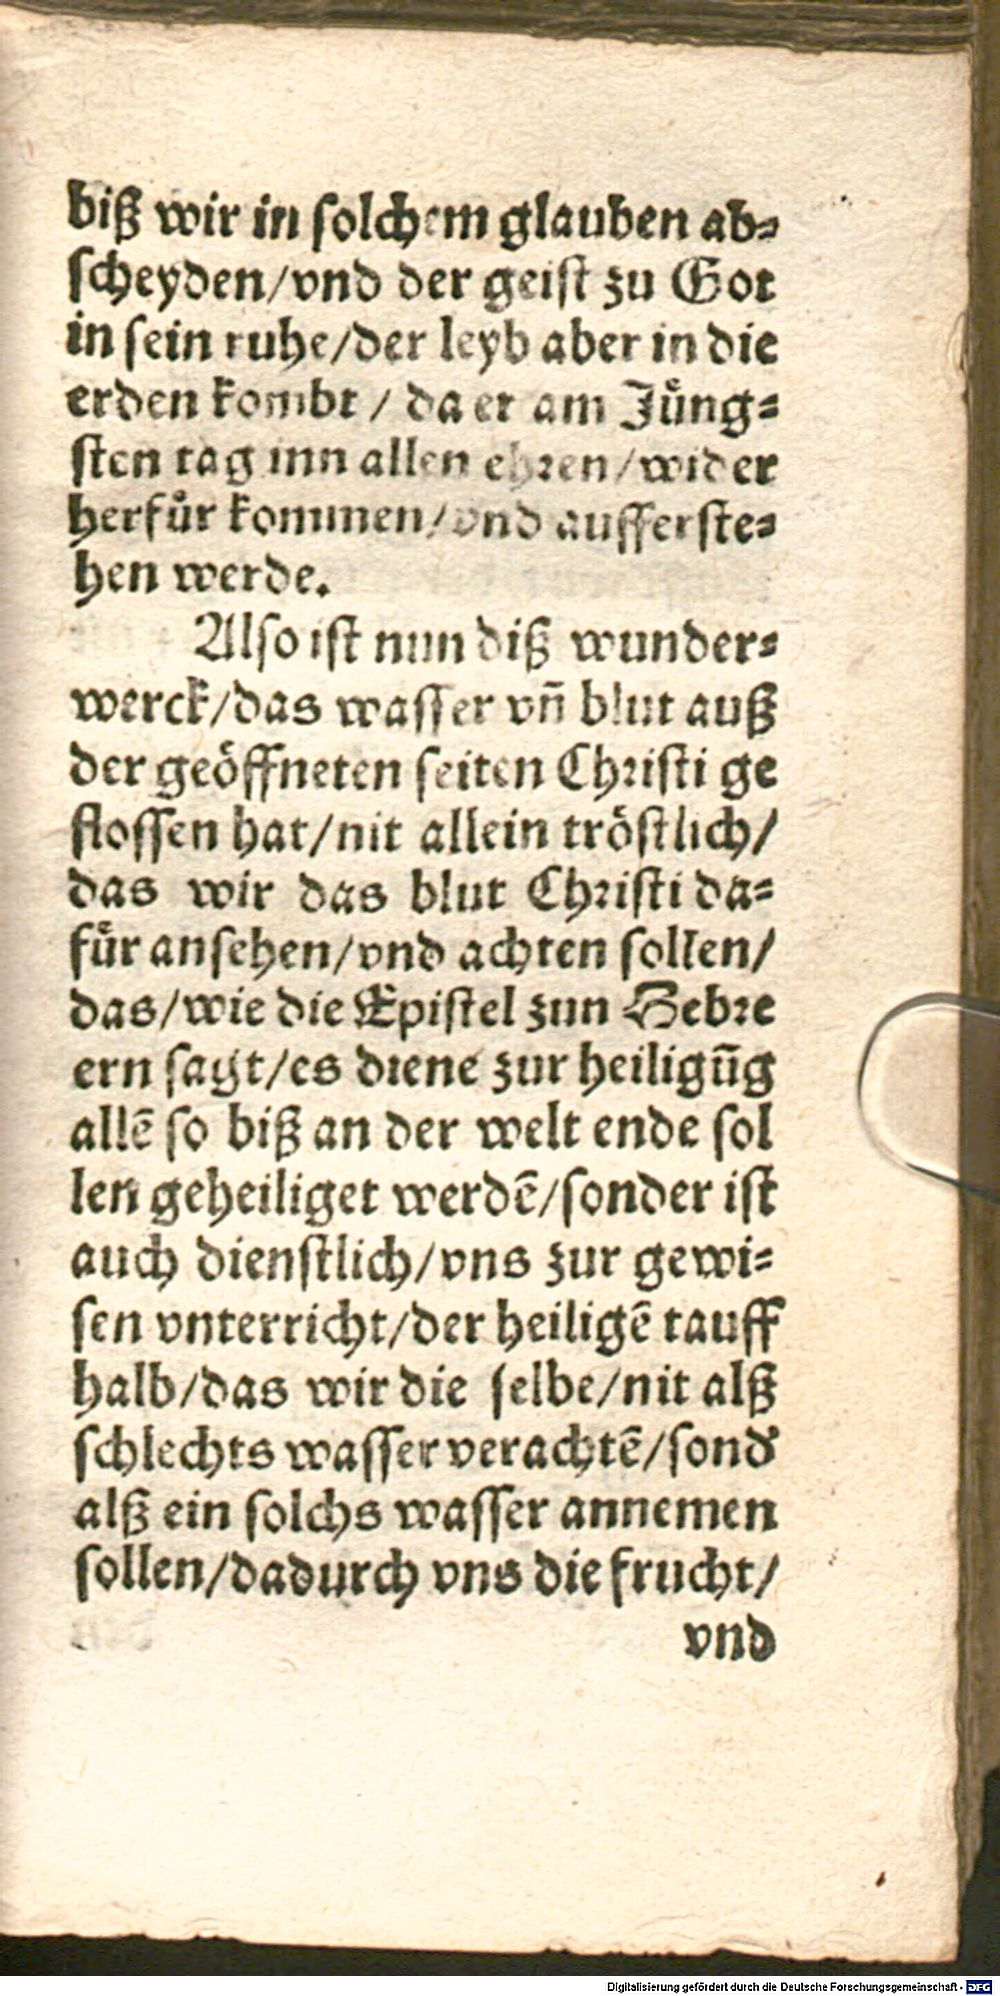 biß wir in ſolchem glauben ab⸗
ſcheyden/vnd der geiſt zu Got
in ſein ruhe/der leyb aber in die
erden kombt / da er am Jüng⸗
ſten tag inn allen ehren/wider
herfür kommen/vnd aufferſte⸗
hen werde.
Alſo iſt nun diß wunder⸗
werck/das waſſer vñ blut auß
der geöffneten ſeiten Chriſti ge
floſſen hat/nit allein tröſtlich/
das wir das blut Chriſti da⸗
für anſehen/vnd achten ſollen/
das/wie die Epiſtel zun Hebre
ern ſagt/es diene zur heiligūg
allē ſo biß an der welt ende ſol
len geheiliget werdē/ſonder iſt
auch dienſtlich/vns zur gewi⸗
ſen vnterricht/der heiligē tauff
halb/das wir die ſelbe/nit alß
ſchlechts waſſer verachtē/ſond̕
alß ein ſolchs waſſer annemen
ſollen/dadurch vns die frucht/
vnd
Digitalisierung gefördert durch die Deutsche Forschungsgemeinschaft - DFG